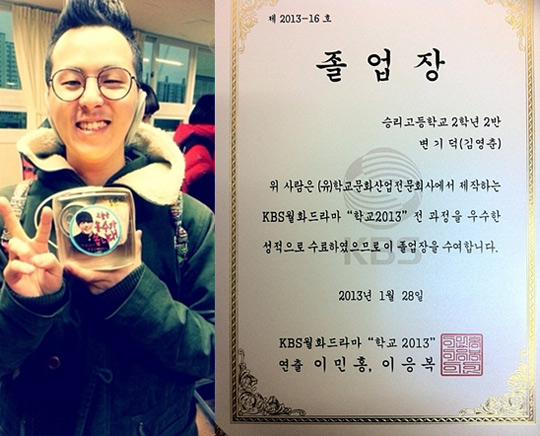 제 2013-16 호
졸업장
승리고등학교 2학년 2반
변기덕(김영춘)
위 사람은 (유)학교문화산업전문회사에서 제작하는
KBS월화드라마 "학교2013" 전 과정을 우수한
성적으로 수료하였으므로 이 졸업장을 수여합니다.
KBS
2013년 1월 28일
KBS월화드라마 "학교 2013"
연출 이민홍, 이응복